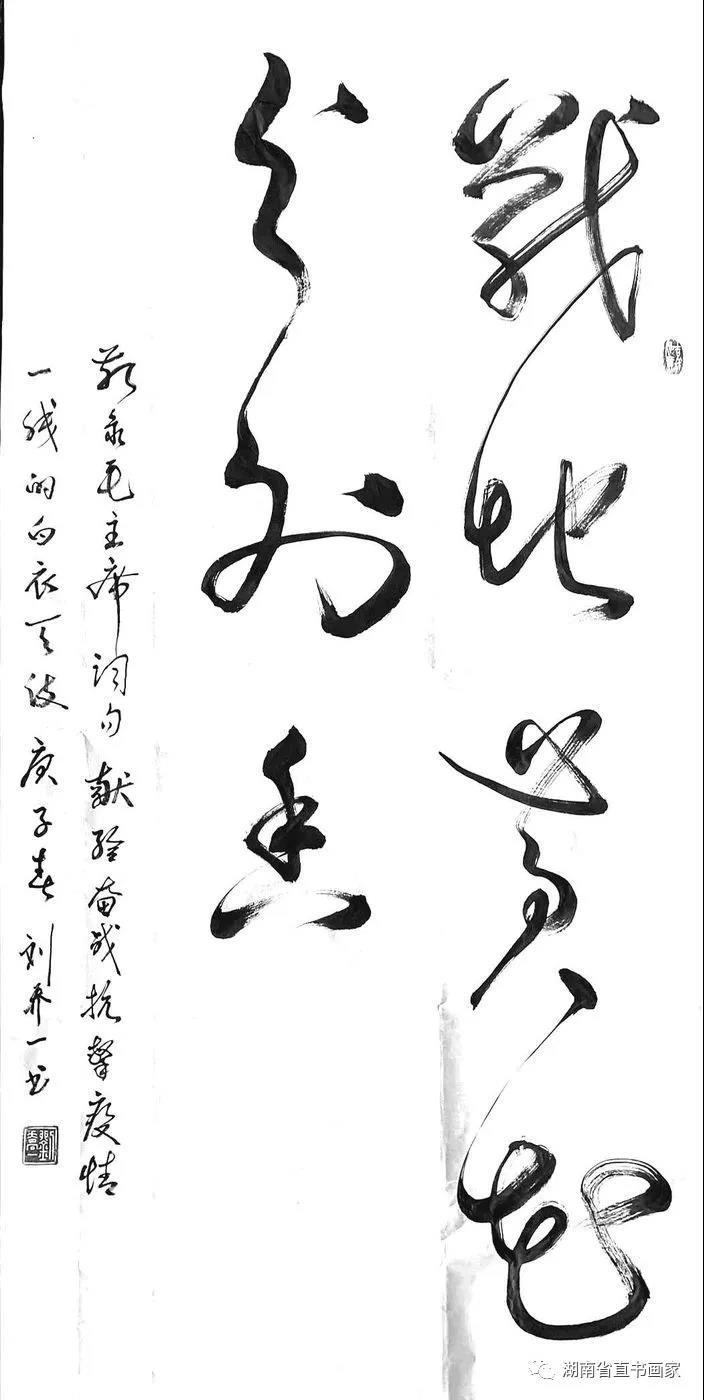 戰地黄花
分外香
敬录毛主席词句 献给奋战抗击疫情
一线的白衣天使 庚子春 刘乔一书
湖南省直书画家